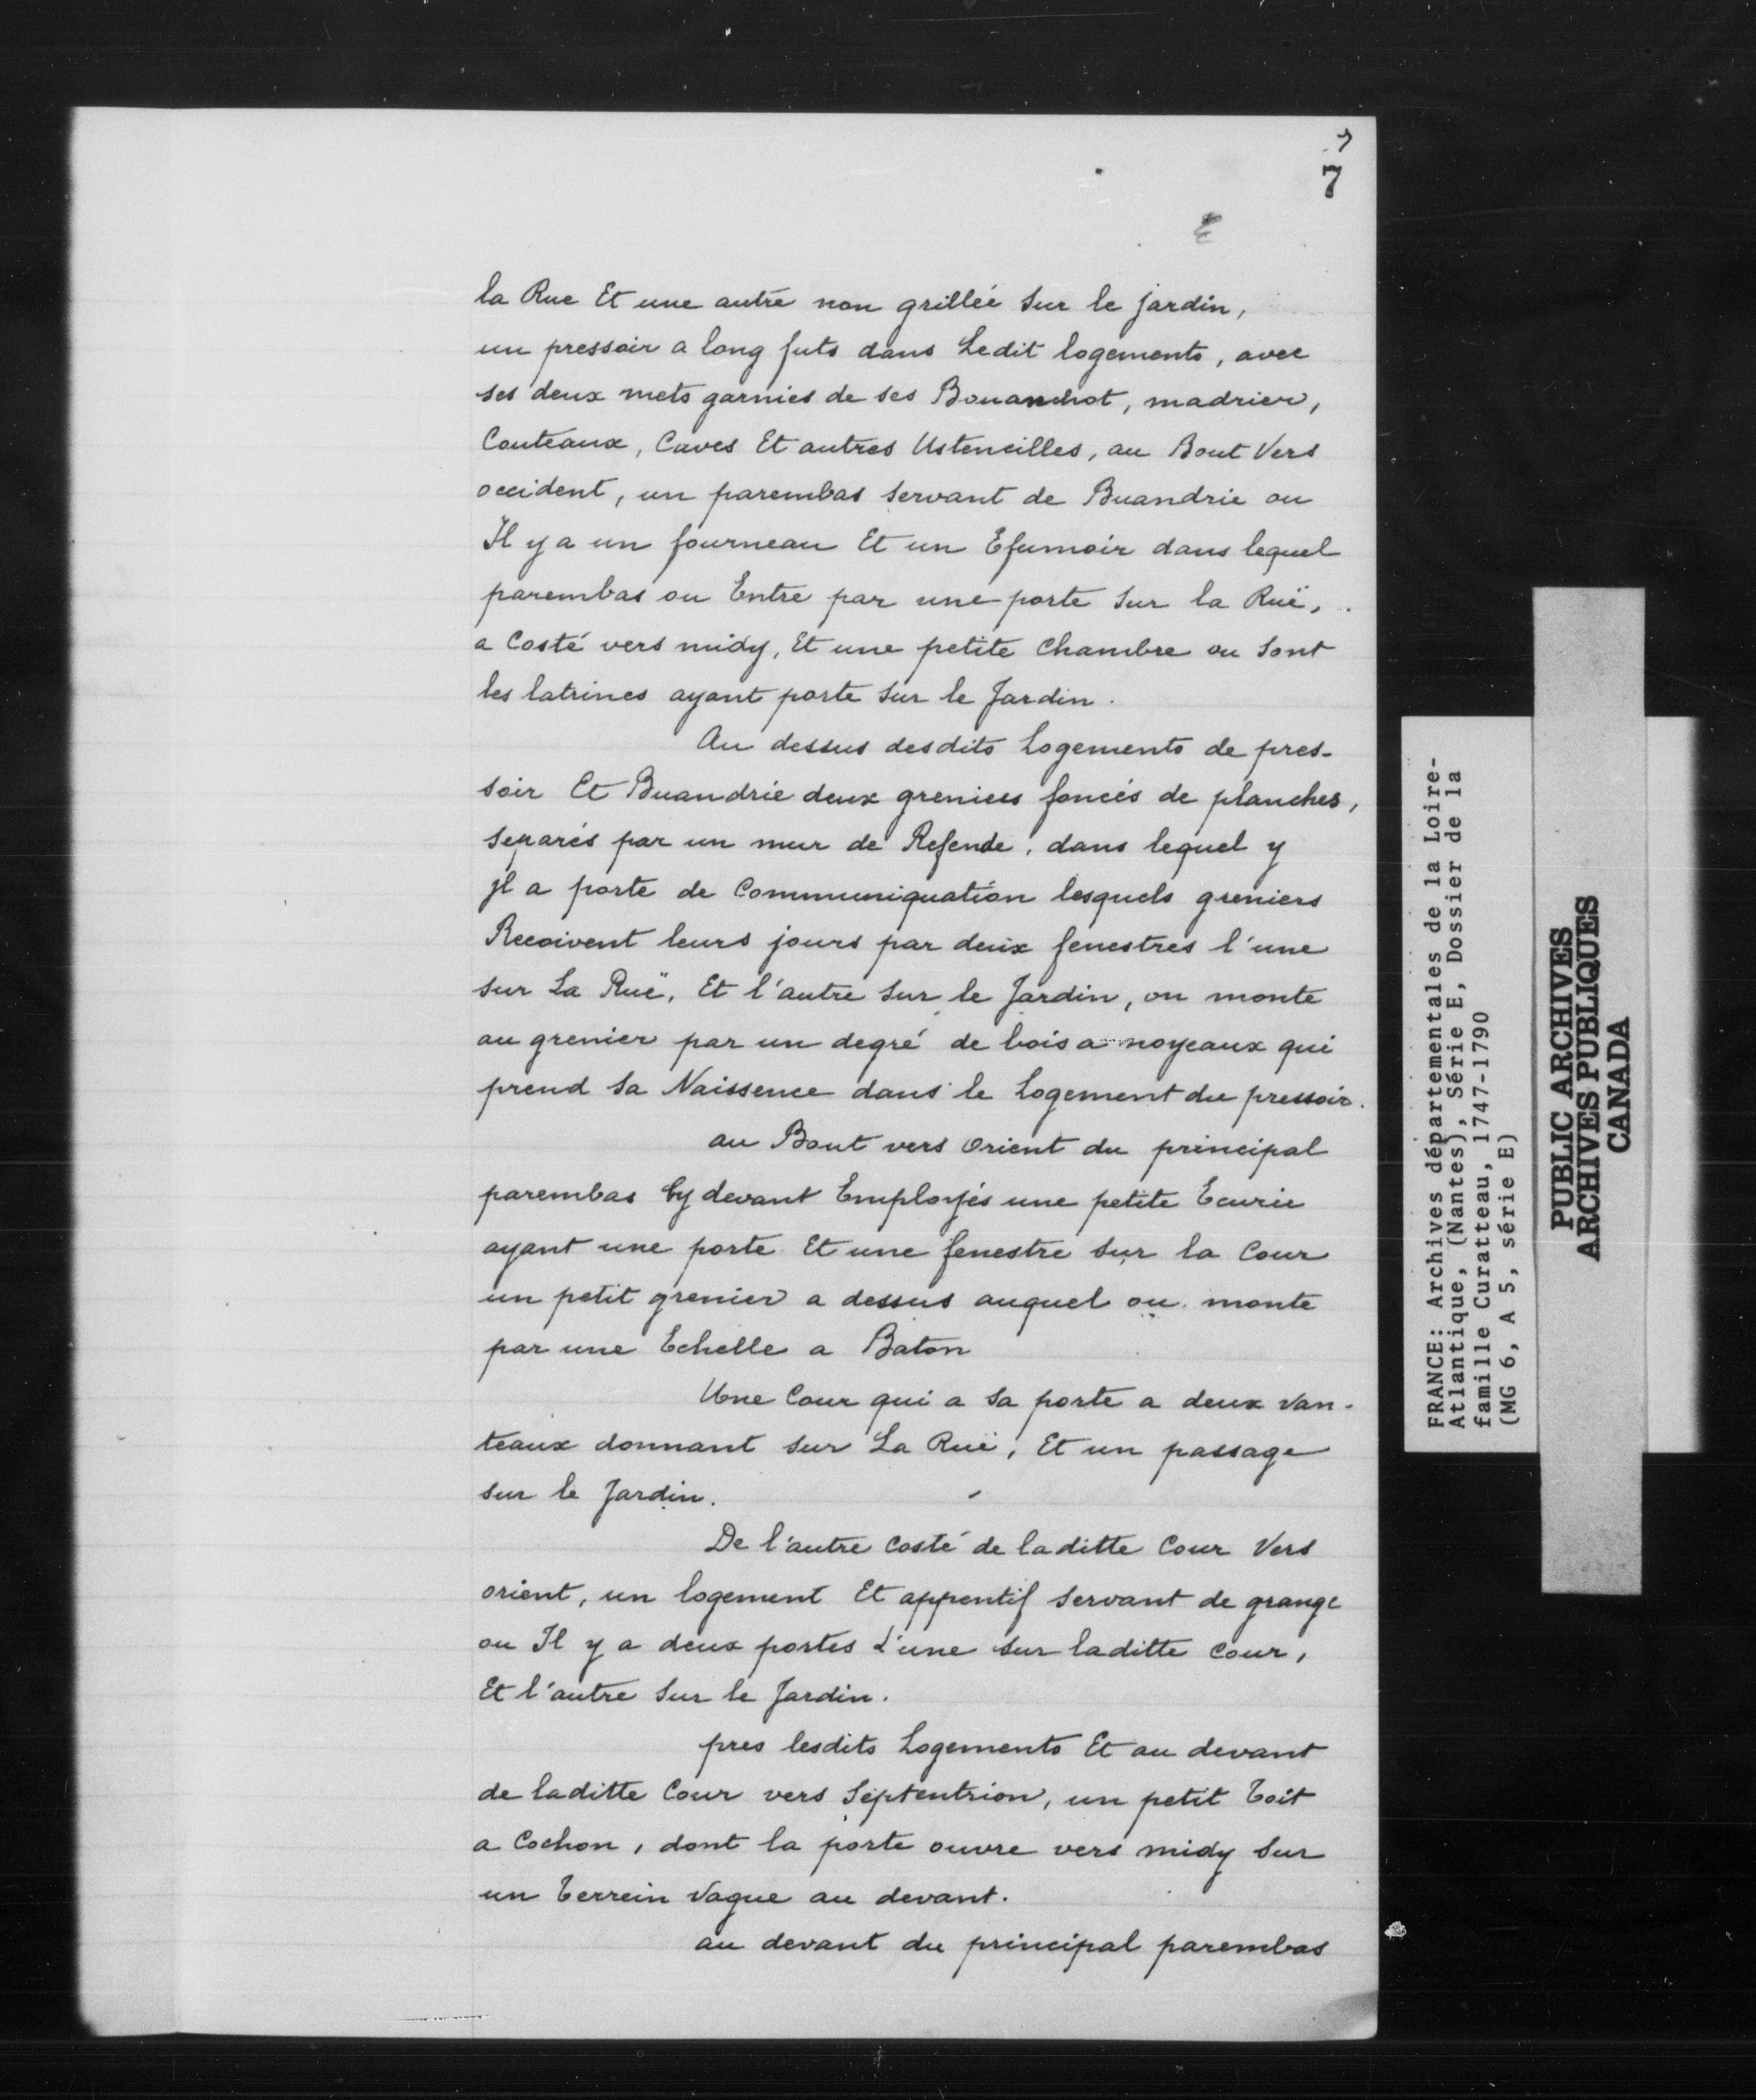 7
7
la Rue Et une autre non grillée sur le jardin,
un pressoir a long futs dans Ledit logements, avec
ses deux mets garnies de ses Bouanchot, madrier,
Couteaux, Cuves Et autres Ustencilles, au Bout Vers
occident, un parembas servant de Buandrie ou
Il y a un fourneau Et un Efumoir dans lequel
parembas on Entre par une porte sur la Ruë,
a Costé vers midy, Et une petite Chambre ou sont
les latrines ayant porte sur le Jardin.
Au dessus desdits Logements de pres-
soir Et Buandrie deux greniers foncés de planches,
separés par un mur de Refende, dans lequel y
jl a porte de Communiquation lesquels greniers
Recoivent leurs jours par deux fenestres l'une
sur La Ruë, Et l'autre sur le Jardin, on monte
au grenier par un degré de bois a noyeaux qui
prend sa Naissence dans le Logement du pressoir.
au Bout vers orient du principal
parembas Cy devant Employés une petite Ecurie
ayant une porte Et une fenestre sur la Cour
un petit grenier a dessus auquel on monte
par une Echelle a Baton
Une Cour qui a sa porte a deux van-
teaux donnant sur La Ruë, Et un passage
sur le Jardin.
De l'autre Costé de laditte Cour Vers
orient, un logement Et appentif servant de grange
ou Il y a deux portes L'une sur laditte Cour,
Et l'autre sur le Jardin.
pres lesdits Logements Et au devant
de laditte Cour vers Septentrion, un petit Toit
a Cochon, dont la porte ouvre vers midy sur
un Terrein Vague au devant.
au devant du principal parembas
FRANCE: Archives départementales de la Loire-
Atlantique, (Nantes), Série E, Dossier de la
famille Curatteau, 1747-1790
(MG 6, A 5, série E)
PUBLIC ARCHIVES
ARCHIVES PUBLIQUES
CANADA